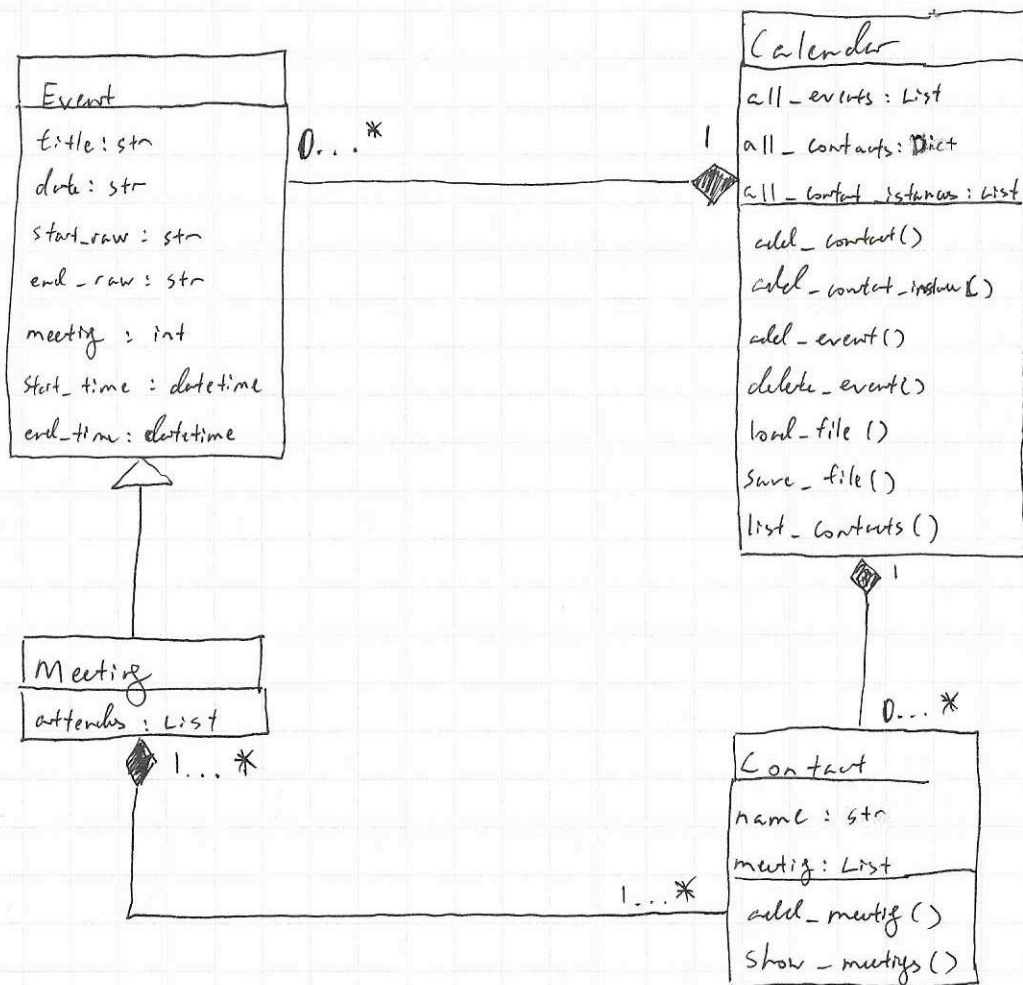 Event
title: str
date: str
start_raw: str
end_raw: str
meetig: int
start_time: datetime
end_time: datetime
0...*
1
Calendar
all_events: List
all_contacts: Dict
all_contat_istances: List
add_contact()
add_contat_instance()
add_event()
delete_event()
load_file()
save_file()
list_contacts()
1
0...*
Meeting
attendes: List
1...*
1...*
Contact
name: str
meetig: List
add_meetig()
show_meetigs()